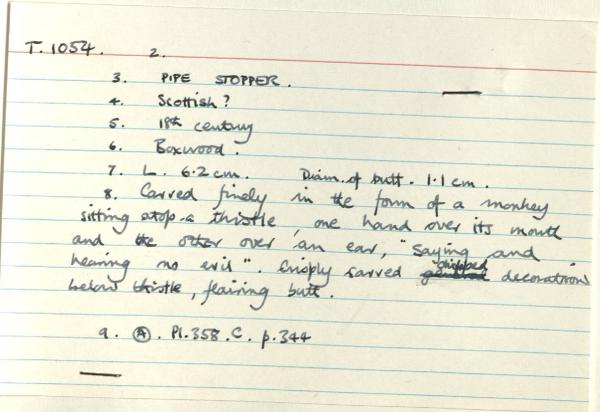 T. 1054. 2.
3. PIPE STOPPER.
4. Scottish?
5. 18th century
6. Boxwood.
7. L. 6.2 cm. Diam. of butt. 1.1 cm.
8. Carved finely in the form of a monkey
sitting atop a thistle, one hand over its mouth
and the other over an ear, "saying and
hearing no evil". Crisply carved decoration
below thistle, flairing butt.
9. A. Pl. 358. C. p. 344